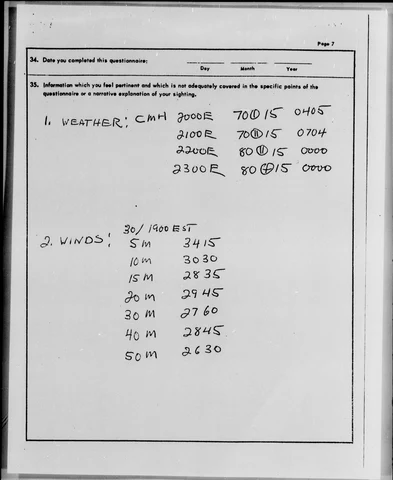 Page 7
34. Date you completed this questionnaire:
Day Month Year
35. Information which you feel pertinent and which is not adequately covered in the specific points of the
questionnaire or a narrative explanation of your sighting.
1. WEATHER: CMH 2000E 70⦶15 0405
2100E 70⦶15 0704
2200E 80⦶15 0000
2300E 80⊕15 0000
30/1900 EST
2. WINDS: 5 M 3415
10 M 3030
15 M 2835
20 M 2945
30 M 2760
40 M 2845
50 M 2630